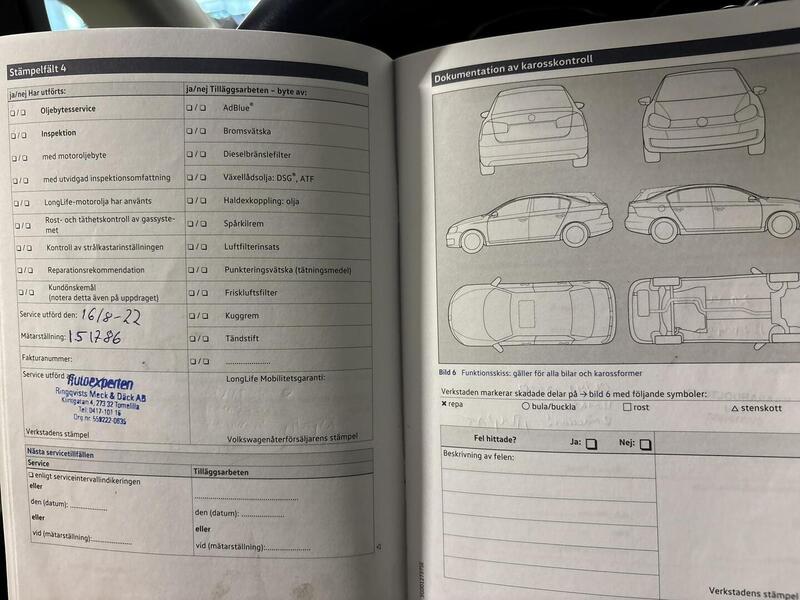 Stämpelfält 4
ja/nej Har utförts:
ja/nej Tilläggsarbeten – byte av:
❏ / ❏ Oljebytesservice
❏ / ❏ AdBlue®
❏ / ❏ Inspektion
❏ / ❏ Bromsvätska
❏ / ❏ med motoroljebyte
❏ / ❏ Dieselbränslefilter
❏ / ❏ med utvidgad inspektionsomfattning
❏ / ❏ Växellådsolja: DSG®, ATF
❏ / ❏ LongLife-motorolja har använts
❏ / ❏ Haldexkoppling: olja
❏ / ❏ Rost- och täthetskontroll av gassyste-
met
❏ / ❏ Spårkilrem
❏ / ❏ Kontroll av strålkastarinställningen
❏ / ❏ Luftfilterinsats
❏ / ❏ Reparationsrekommendation
❏ / ❏ Punkteringsvätska (tätningsmedel)
❏ / ❏ Kundönskemål
(notera detta även på uppdraget)
❏ / ❏ Friskluftsfilter
Service utförd den: 16/8-22
❏ / ❏ Kuggrem
Mätarställning: 151786
❏ / ❏ Tändstift
Fakturanummer:
❏ / ❏ ....................
Service utförd
LongLife Mobilitetsgaranti:
Autoexperten
Ringqvists Meck & Däck AB
273 32 Tomelilla
Tel: 0417-101 16
Org.nr:
Verkstadens stämpel
Volkswagenåterförsäljarens stämpel
Nästa servicetillfällen
Service
Tilläggsarbeten
❏ enligt serviceintervallindikeringen
eller
den (datum): ................
den (datum): ................
eller
eller
vid (mätarställning):................
vid (mätarställning):................
Dokumentation av karosskontroll
Bild 6 Funktionsskiss: gäller för alla bilar och karossformer
Verkstaden markerar skadade delar på → bild 6 med följande symboler:
✗ repa ○ bula/buckla □ rost △ stenskott
Fel hittade? Ja: ❏ Nej: ❏
Beskrivning av felen:
Verkstadens stämpel